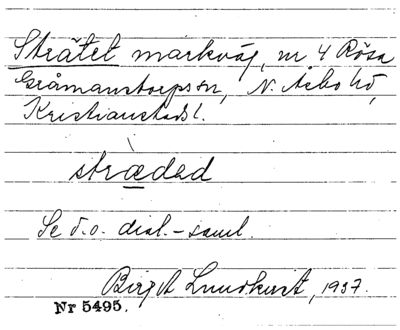 Stråtet markväg, nr 4 Rösa
Gråmanstorps sn, N. Åsbo hd,
Kristianstads l.
strædəd
Se d.o. dial.-saml.
Birgit Lundkvist, 1937.
Nr 5495.